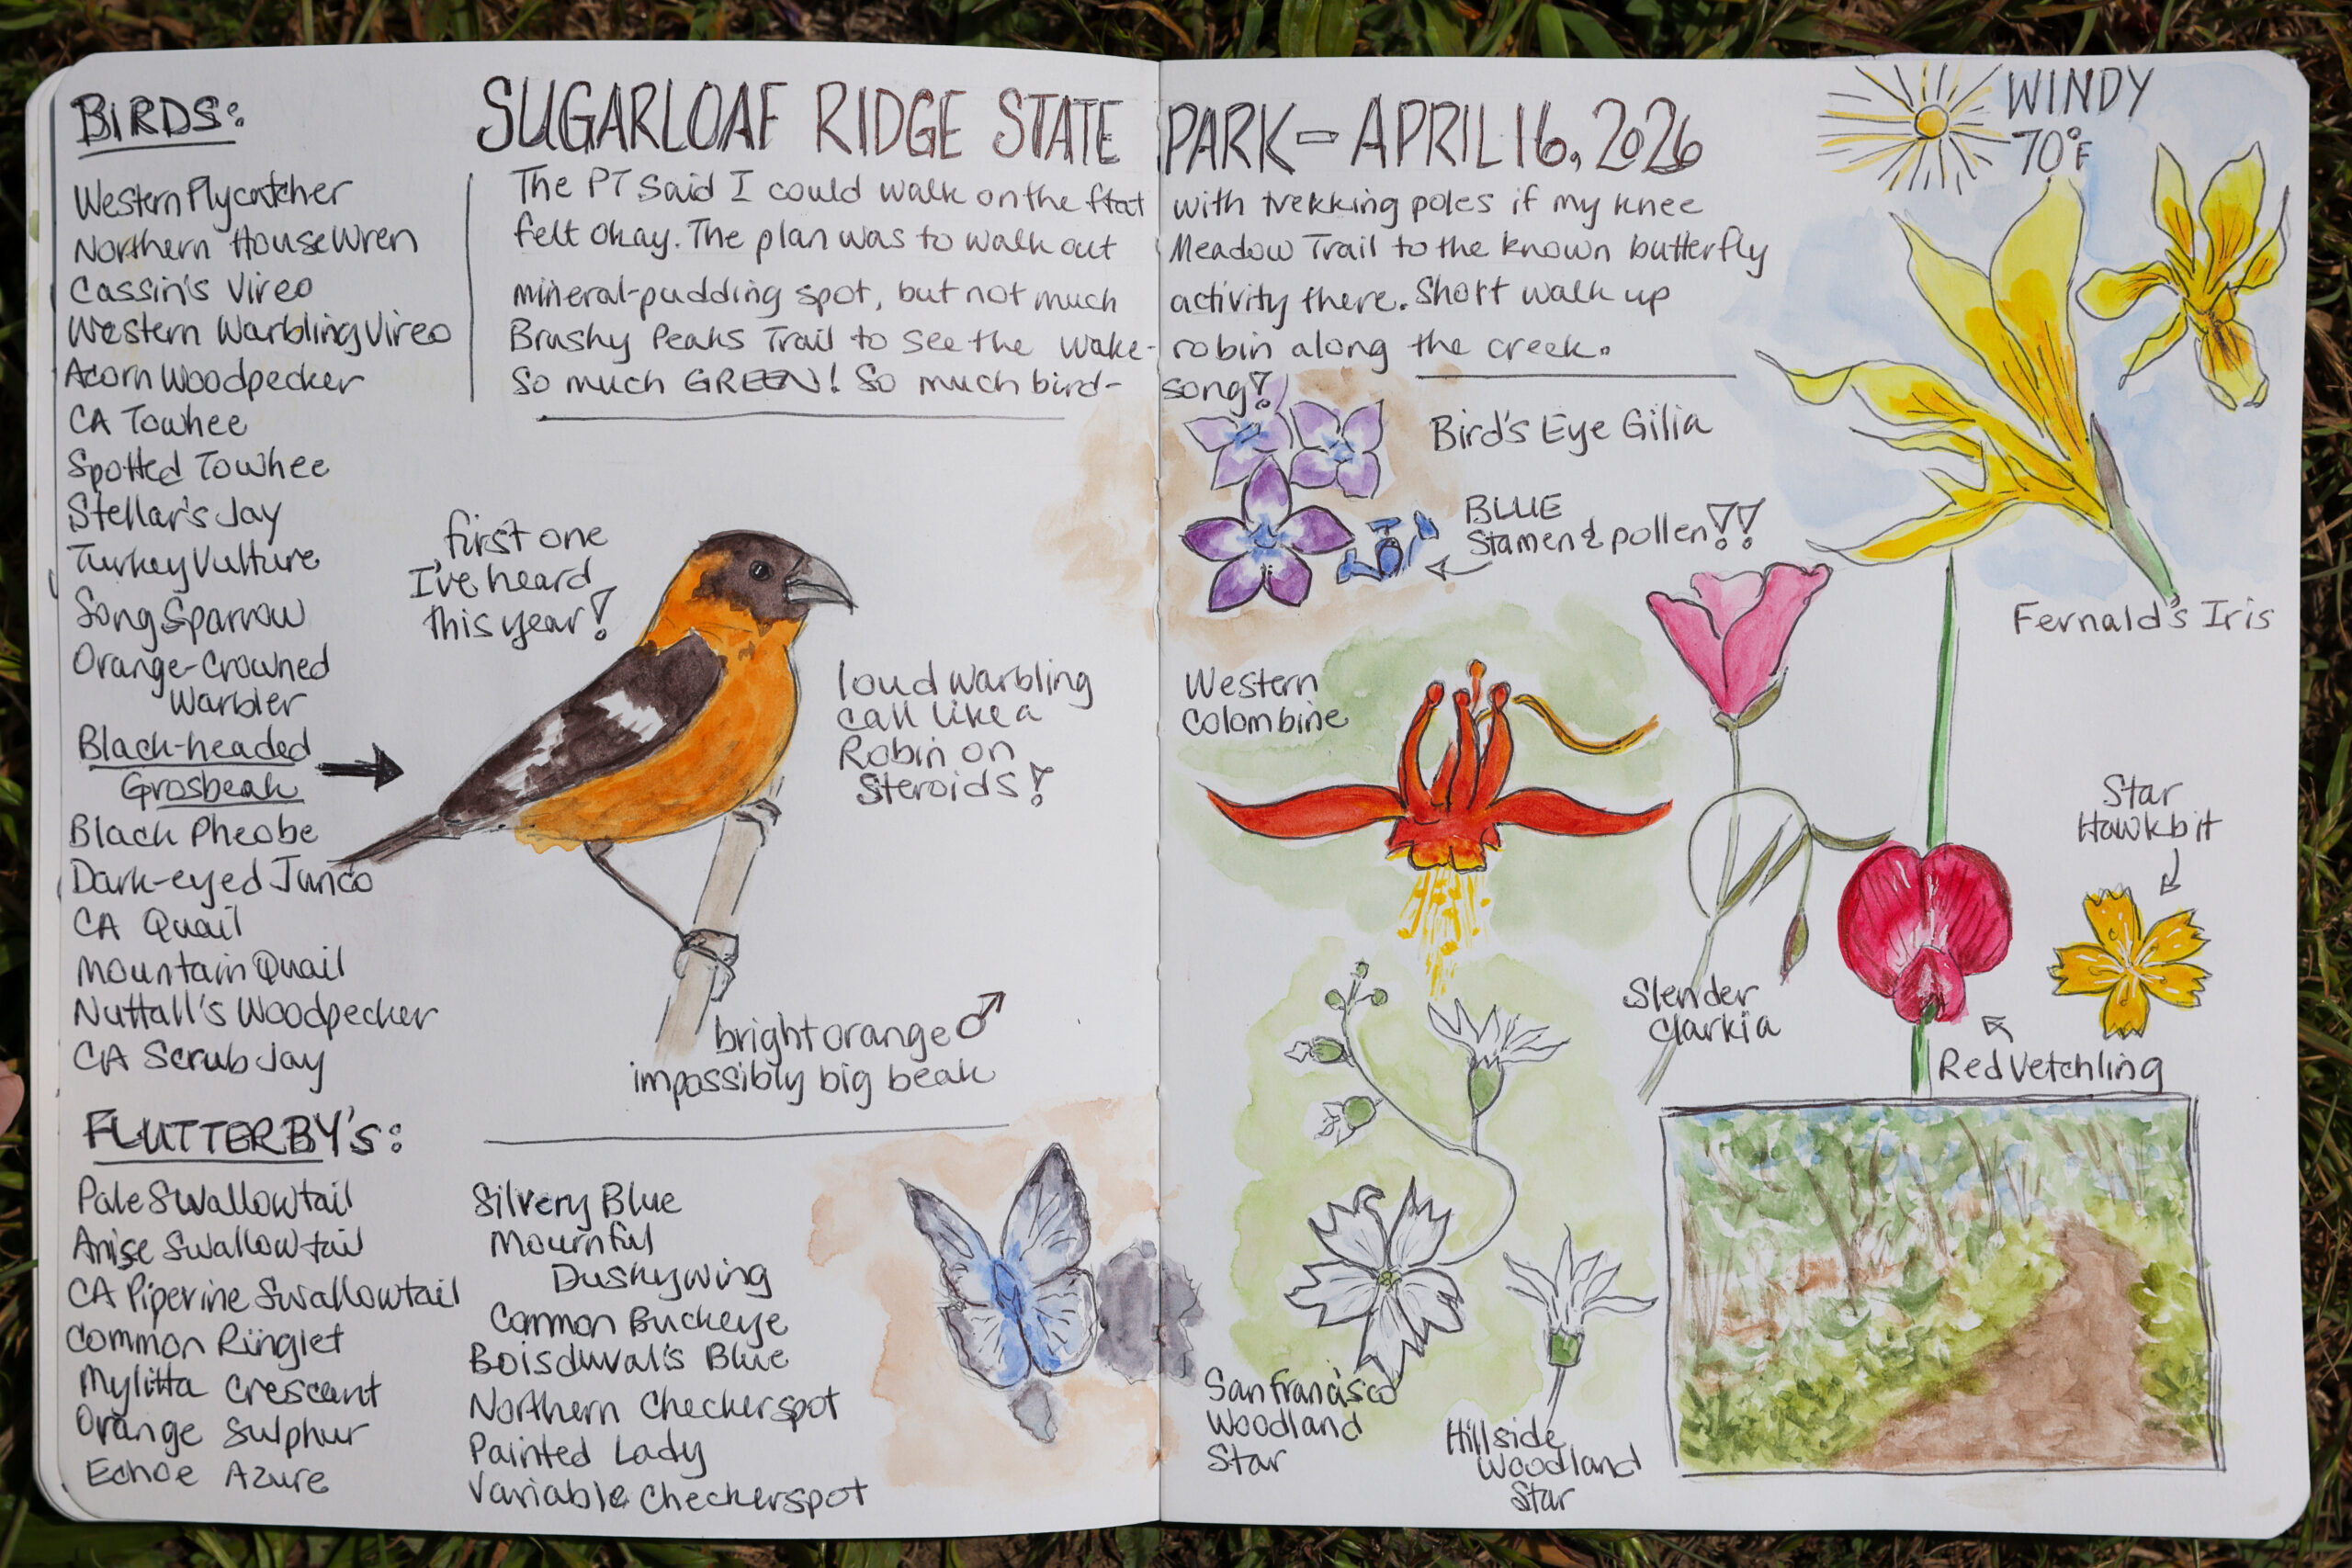 SUGARLOAF RIDGE STATE PARK - APRIL 16, 2026
WINDY
70°F
BIRDS:
Western Flycatcher
Northern House Wren
Cassin's Vireo
Western Warbling Vireo
Acorn Woodpecker
CA Towhee
Spotted Towhee
Stellar's Jay
Turkey Vulture
Song Sparrow
Orange-Crowned
Warbler
Black-headed
Grosbeak
Black Pheobe
Dark-eyed Junco
CA Quail
Mountain Quail
Nuttall's Woodpecker
CA Scrub Jay
The PT said I could walk on the flat with trekking poles if my knee
felt okay. The plan was to walk out Meadow Trail to the known butterfly
mineral-pudding spot, but not much activity there. Short walk up
Brushy Peaks Trail to see the wake-robin along the creek.
So much GREEN! So much bird-song!
first one
I've heard
this year!
loud warbling
call like a
Robin on
Steroids!
bright orange ♂
impossibly big beak
FLUTTERBY's:
Pale Swallowtail
Anise Swallowtail
CA Piperine Swallowtail
Common Ringlet
Mylitta Crescant
Orange Sulphur
Echoe Azure
Silvery Blue
Mournful
Duskywing
Common Buckeye
Boisduval's Blue
Northern Checkerspot
Painted Lady
Variable Checkerspot
Bird's Eye Gilia
BLUE
Stamen & pollen!!
Fernald's Iris
Western
Colombine
Star
Hawkbit
Slender
Clarkia
Red Vetchling
San Francisco
Woodland
Star
Hillside
Woodland
Star